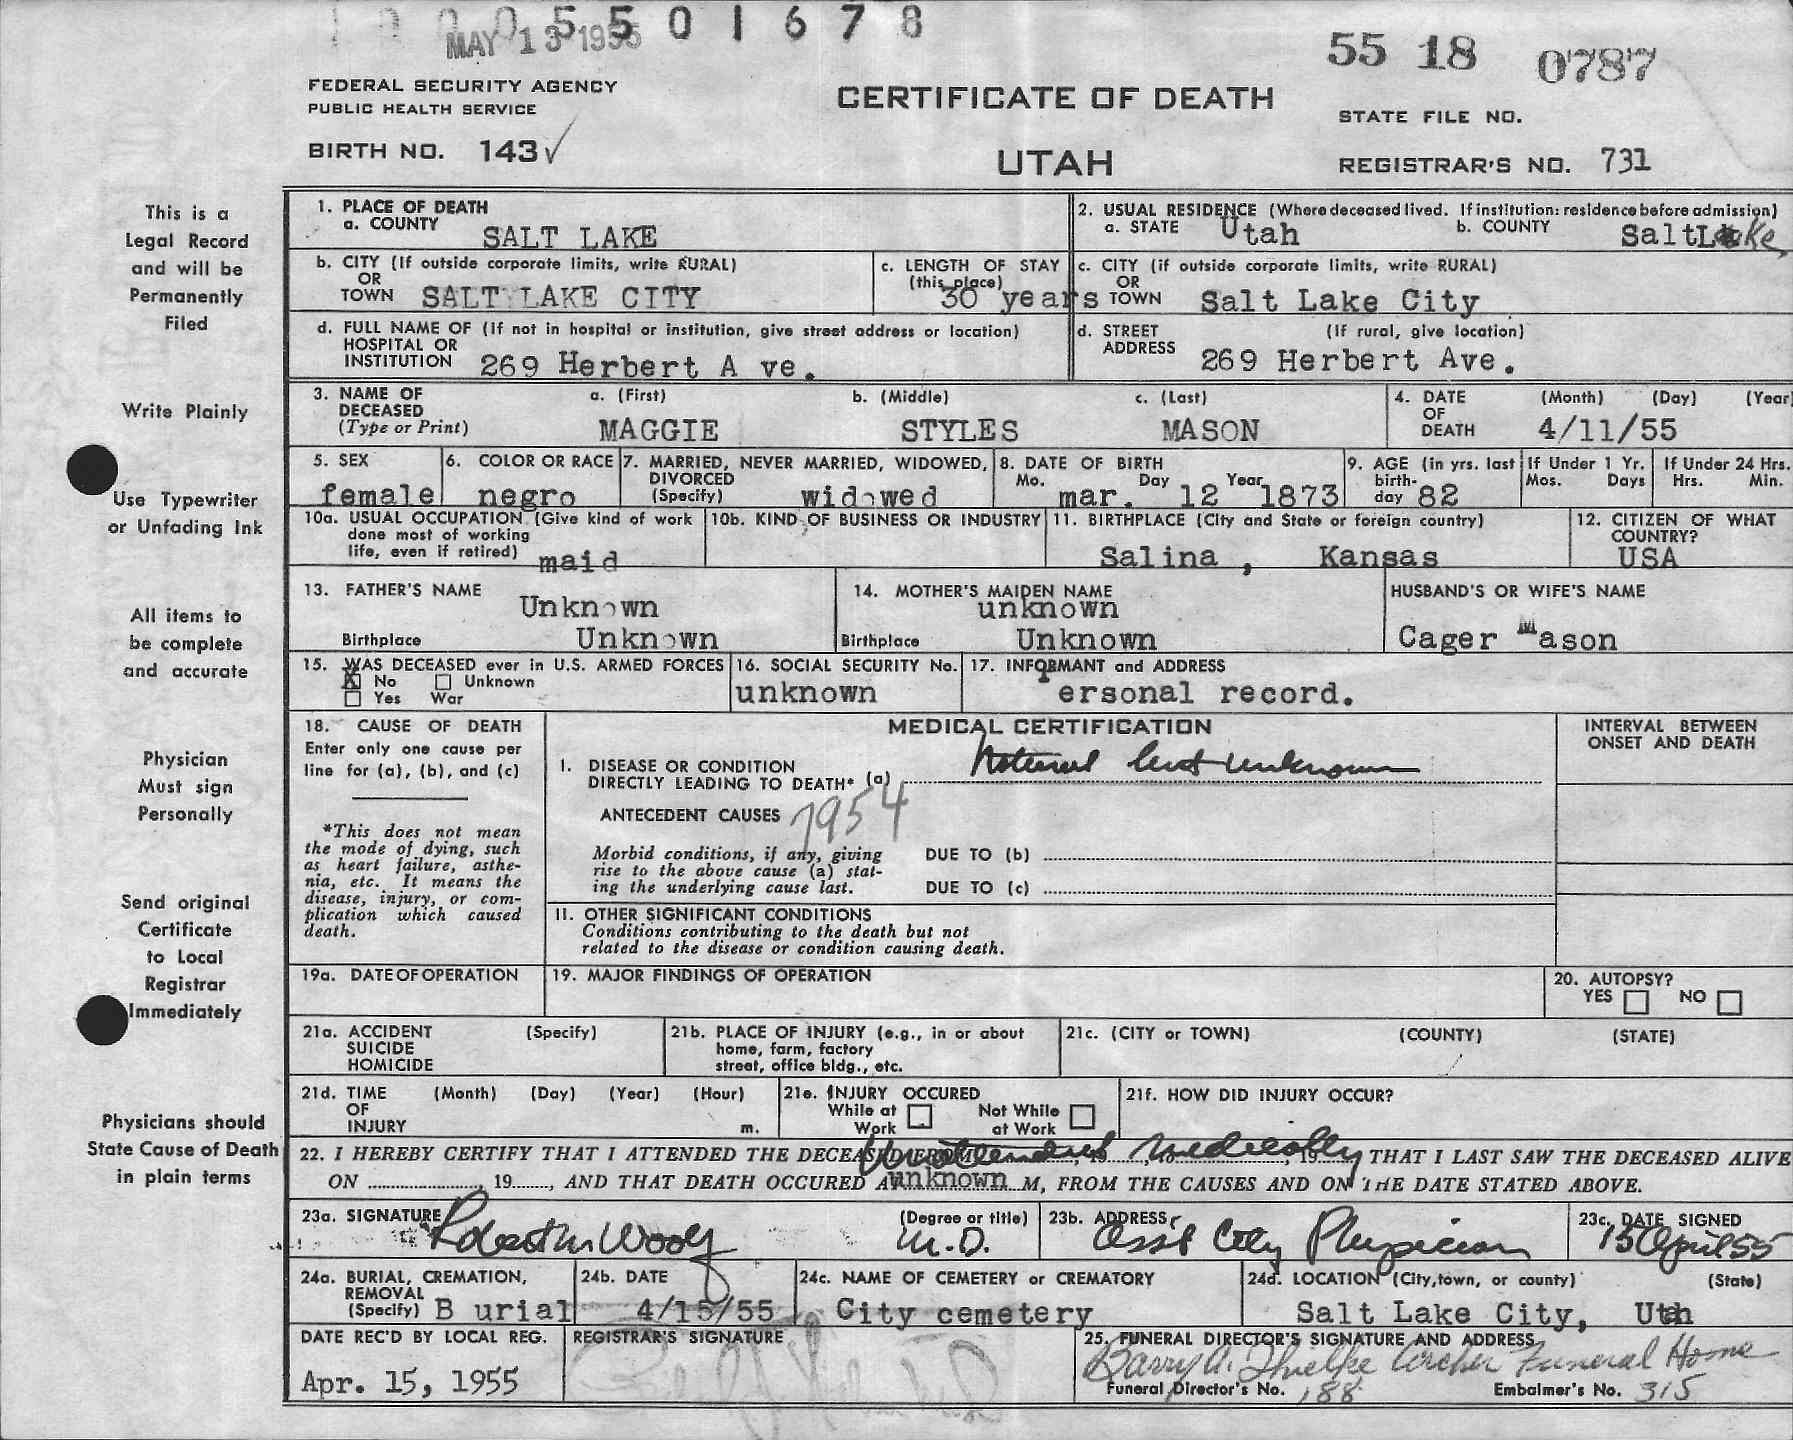 1 0 0 0 5 5 0 1 6 7 8
MAY 13 1955
55 18 0787
FEDERAL SECURITY AGENCY
PUBLIC HEALTH SERVICE
CERTIFICATE OF DEATH
STATE FILE NO.
BIRTH NO. 143 ✓
UTAH
REGISTRAR'S NO. 731
This is a
Legal Record
and will be
Permanently
Filed
Write Plainly
Use Typewriter
or Unfading Ink
All items to
be complete
and accurate
Physician
Must sign
Personally
Send original
Certificate
to Local
Registrar
Immediately
Physicians should
State Cause of Death
in plain terms
1. PLACE OF DEATH
a. COUNTY SALT LAKE
2. USUAL RESIDENCE (Where deceased lived. If institution: residence before admission)
a. STATE Utah b. COUNTY Salt Lake
b. CITY (If outside corporate limits, write RURAL)
OR
TOWN SALT LAKE CITY
c. LENGTH OF STAY
(this place)
30 years
c. CITY (if outside corporate limits, write RURAL)
OR
TOWN Salt Lake City
d. FULL NAME OF (If not in hospital or institution, give street address or location)
HOSPITAL OR
INSTITUTION 269 Herbert A ve.
d. STREET (If rural, give location)
ADDRESS 269 Herbert Ave.
3. NAME OF a. (First) b. (Middle) c. (Last)
DECEASED
(Type or Print) MAGGIE STYLES MASON
4. DATE (Month) (Day) (Year)
OF
DEATH 4/11/55
5. SEX
female
6. COLOR OR RACE
negro
7. MARRIED, NEVER MARRIED, WIDOWED,
DIVORCED
(Specify) widowed
8. DATE OF BIRTH
Mo. Day Year
mar. 12 1873
9. AGE (in yrs. last
birth-
day 82
If Under 1 Yr.
Mos. Days
If Under 24 Hrs.
Hrs. Min.
10a. USUAL OCCUPATION (Give kind of work
done most of working
life, even if retired) maid
10b. KIND OF BUSINESS OR INDUSTRY
11. BIRTHPLACE (City and State or foreign country)
Salina , Kansas
12. CITIZEN OF WHAT
COUNTRY?
USA
13. FATHER'S NAME
Unknown
Birthplace Unknown
14. MOTHER'S MAIDEN NAME
unknown
Birthplace Unknown
HUSBAND'S OR WIFE'S NAME
Cager Mason
15. WAS DECEASED ever in U.S. ARMED FORCES
X No Unknown
Yes War
16. SOCIAL SECURITY No.
unknown
17. INFORMANT and ADDRESS
Personal record.
18. CAUSE OF DEATH
Enter only one cause per
line for (a), (b), and (c)
*This does not mean
the mode of dying, such
as heart failure, asthe-
nia, etc. It means the
disease, injury, or com-
plication which caused
death.
MEDICAL CERTIFICATION
I. DISEASE OR CONDITION
DIRECTLY LEADING TO DEATH* (a) Natural but unknown
ANTECEDENT CAUSES 7954
Morbid conditions, if any, giving
rise to the above cause (a) stat-
ing the underlying cause last.
DUE TO (b)
DUE TO (c)
II. OTHER SIGNIFICANT CONDITIONS
Conditions contributing to the death but not
related to the disease or condition causing death.
INTERVAL BETWEEN
ONSET AND DEATH
19a. DATE OF OPERATION
19. MAJOR FINDINGS OF OPERATION
20. AUTOPSY?
YES NO
21a. ACCIDENT (Specify)
SUICIDE
HOMICIDE
21b. PLACE OF INJURY (e.g., in or about
home, farm, factory
street, office bldg., etc.
21c. (CITY or TOWN) (COUNTY) (STATE)
21d. TIME (Month) (Day) (Year) (Hour)
OF
INJURY m.
21e. INJURY OCCURED
While at Not While
Work at Work
21f. HOW DID INJURY OCCUR?
22. I HEREBY CERTIFY THAT I ATTENDED THE DECEASED FROM Unattended, 19 , to medically, 19 THAT I LAST SAW THE DECEASED ALIVE
ON , 19 , AND THAT DEATH OCCURED AT unknown M, FROM THE CAUSES AND ON THE DATE STATED ABOVE.
23a. SIGNATURE (Degree or title)
Robert M Woolf M.D.
23b. ADDRESS
Asst City Physician
23c. DATE SIGNED
15 April 55
24a. BURIAL, CREMATION,
REMOVAL
(Specify) B urial
24b. DATE
4/15/55
24c. NAME OF CEMETERY or CREMATORY
City cemetery
24d. LOCATION (City, town, or county) (State)
Salt Lake City, Utah
DATE REC'D BY LOCAL REG.
Apr. 15, 1955
REGISTRAR'S SIGNATURE
25. FUNERAL DIRECTOR'S SIGNATURE AND ADDRESS
Barry A. Thielke Archer Funeral Home
Funeral Director's No. 188 Embalmer's No. 315